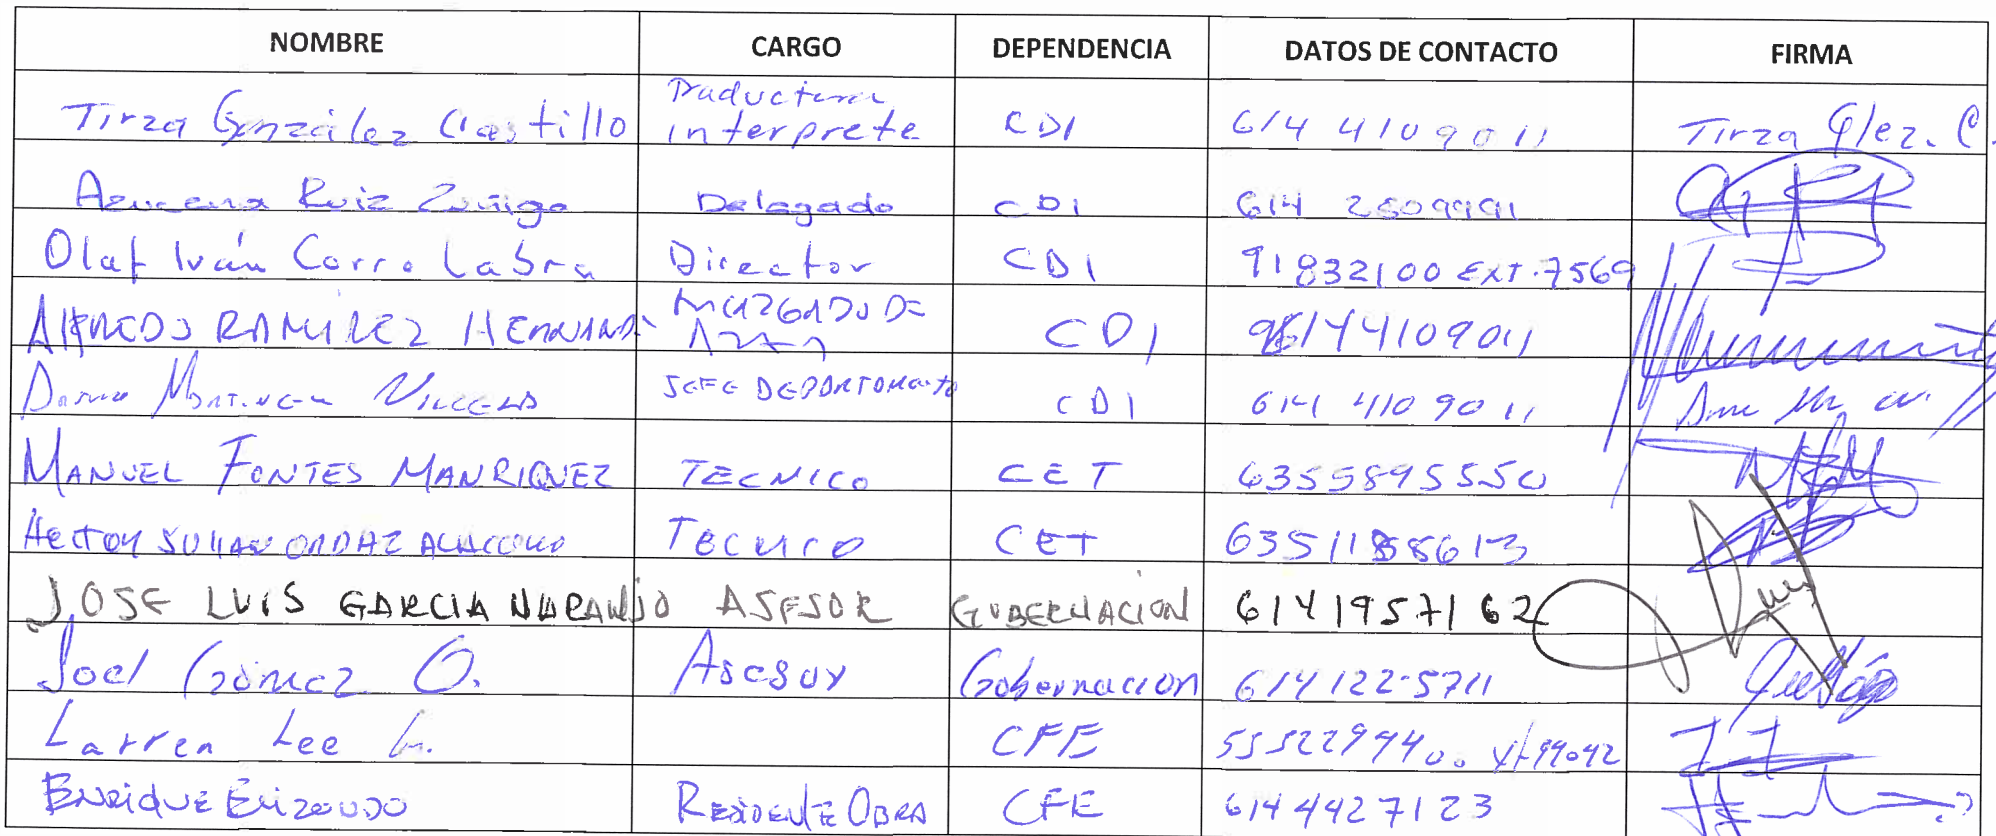 NOMBRE CARGO DEPENDENCIA DATOS DE CONTACTO FIRMA
Tirza González Castillo Traductora interprete CDI 614 4109011 Tirza Glez. C.
Azucena Ruiz Zuñiga Delagado CDI 614 2609991
Olaf Iván Corro Labra Director CDI 91832100 EXT. 7569
Alfredo RAMIREZ HERNAND CDI 6144109011
JEFE DEPARTAMENTO CDI 614 410 90 11
MANUEL FONTES MANRIQUEZ TECNICO CET 6355895550
Hector JULIAN ORDAZ Tecnico CET
JOSE LUIS GARCIA NARANJO ASESOR GOBERNACION 6141957162
Joel Gómez O. Asesor Gobernacion 614 122-5711
Larren Lee CFE
ENRIQUE ELIZONDO RESIDENTE OBRA CFE 614 4427123